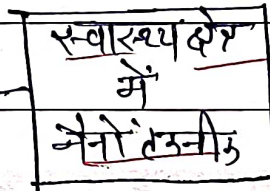 स्वास्थ्य क्षेत्र
में
नैनो तकनीक